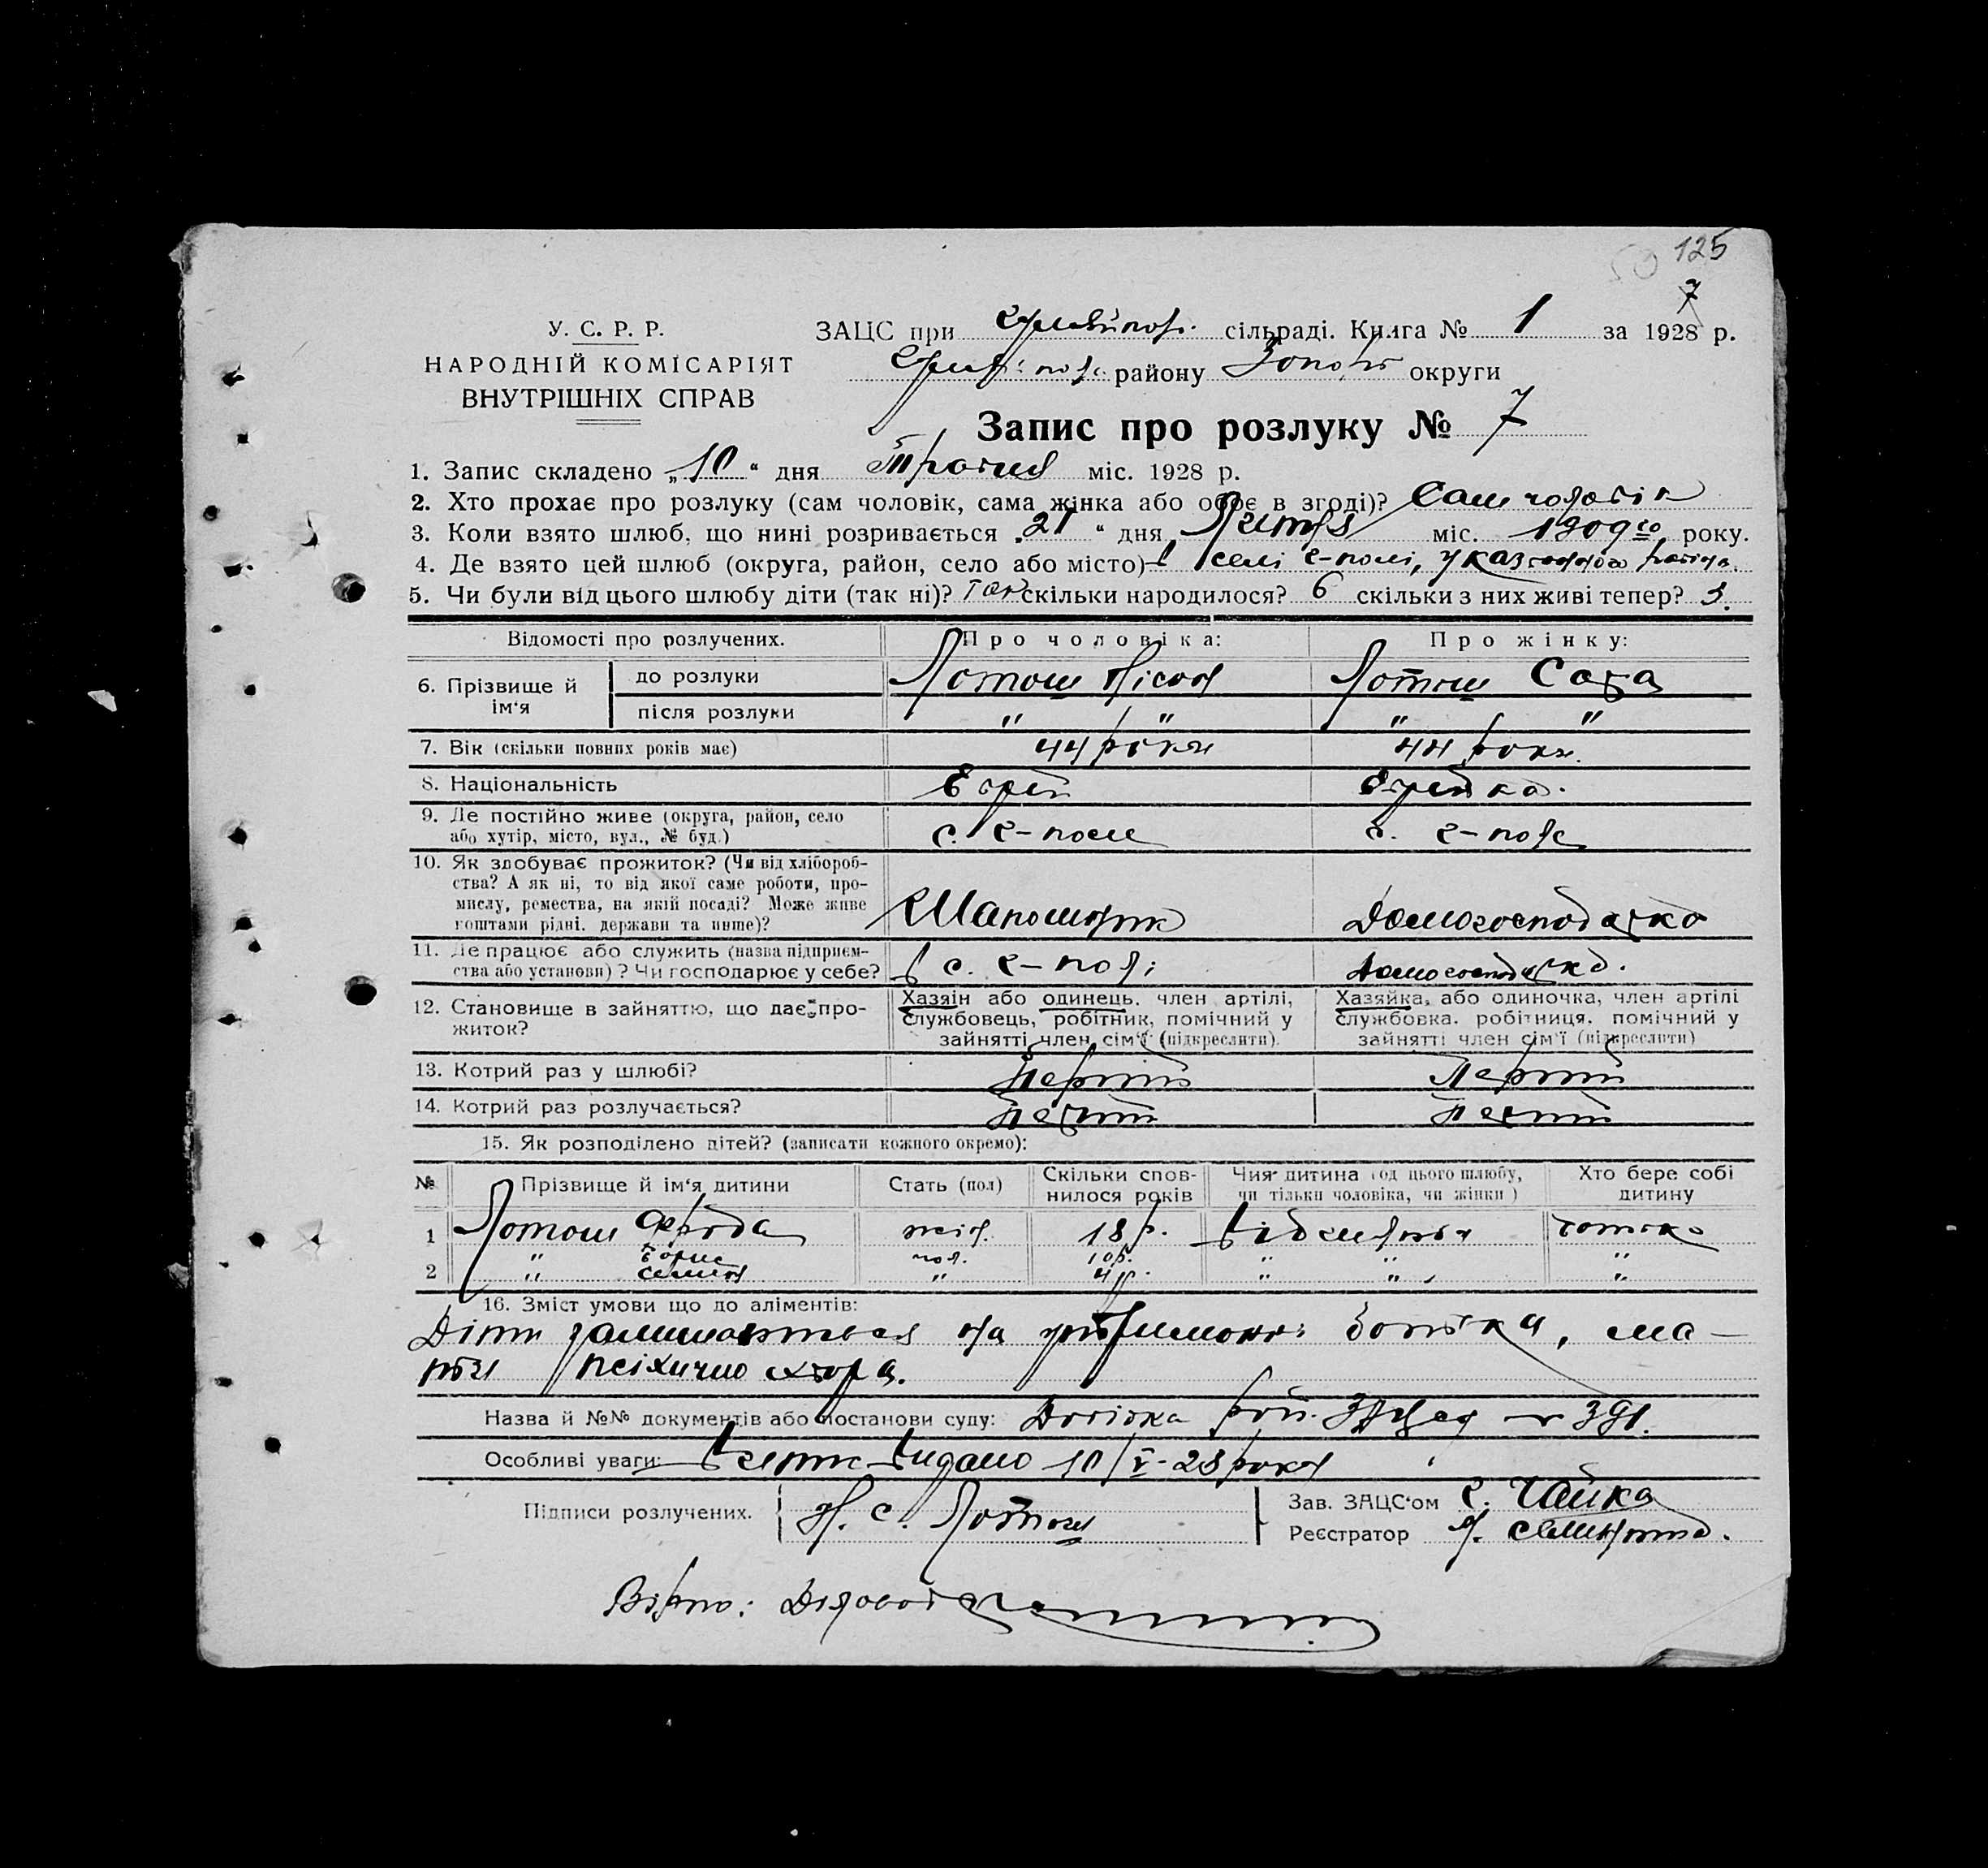 125
7
У. С. Р. Р.
НАРОДНІЙ КОМІСАРІЯТ
ВНУТРІШНІХ СПРАВ
ЗАЦС при сільраді. Книга № 1 за 1928 р.
району округи
Запис про розлуку № 7
1. Запис складено „10“ дня Травня міс. 1928 р.
2. Хто прохає про розлуку (сам чоловік, сама жінка або обоє в згоді)? Сам чоловік
3. Коли взято шлюб, що нині розривається „21“ дня міс. 1909го року.
4. Де взято цей шлюб (округа, район, село або місто) в селі
5. Чи були від цього шлюбу діти (так ні)? Так скільки народилося? 6 скільки з них живі тепер? 3.
Відомості про розлучених. Про чоловіка: Про жінку:
6. Прізвище й ім‘я до розлуки Лотош Лотош Сара
після розлуки " " " "
7. Вік (скільки повних років має) 44 роки 44 роки.
8. Національність Єврей Єврейка.
9. Де постійно живе (округа, район, село
або хутір, місто, вул., № буд.) с. Г-поле с. Г-поле
10. Як здобуває прожиток? (Чи від хлібороб-
ства? А як ні, то від якої саме роботи, про-
мислу, ремества, на якій посаді? Може живе
коштами рідні, держави та инше)? Шаповал Домогосподарка
11. Де працює або служить (назва підприєм-
ства або установи)? Чи господарює у себе? в с. Г-полі Домогосподарка.
12. Становище в зайняттю, що дає про-
житок?
Хазяїн або одинець, член артілі,
службовець, робітник, помічний у
зайнятті член сім‘ї (підкреслити).
Хазяйка, або одиночка, член артілі
службовка, робітниця, помічний у
зайнятті член сім‘ї (підкреслити)
13. Котрий раз у шлюбі? Перший Перший
14. Котрий раз розлучається? Перший Перший
15. Як розподілено дітей? (записати кожного окремо):
№ Прізвище й ім‘я дитини Стать (пол) Скільки спов-
нилося років Чия дитина (од цього шлюбу,
чи тільки чоловіка, чи жінки) Хто бере собі
дитину
1 Лотош жін. 18 р. Від шлюбу батько
" Борис чол. 10 р. " " "
2 " Семен " 4 р. " " "
16. Зміст умови що до аліментів:
Діти залишаються на утриманні батька, ма-
ти психично хвора.
Назва й №№ документів або постанови суду: Довідка
Особливі уваги: видано 10/V-28 року
Підписи розлучених. Н. С. Лотош
Зав. ЗАЦС‘ом Чайка
Реєстратор
Вірно: